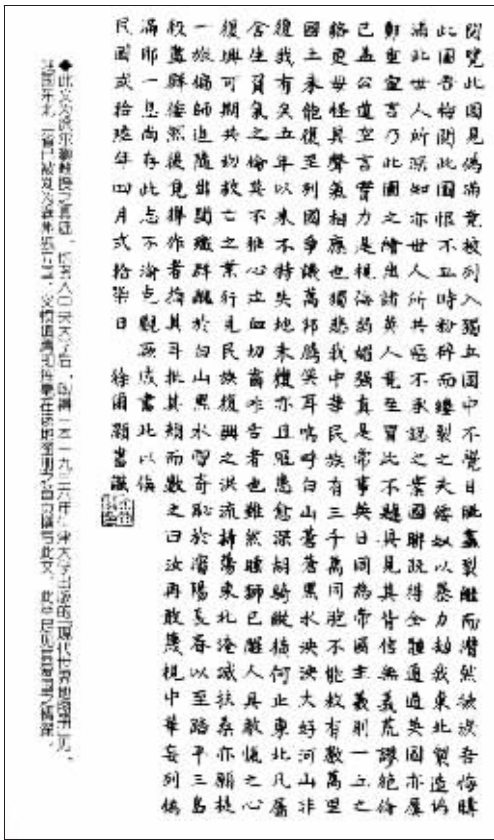 閱覽此圖見偽滿竟被列入獨立國中不覺目眦盡裂繼而潸然欲淚吾悔購
此圖吾悔閱此圖恨不立時粉碎而裂之夫倭奴以暴力刼我東北製造偽
滿此世人所深知亦世人所共惡不承認之業國聯既得全體通過英國亦屢
鄭重宣言乃此圖之繪出諸英人竟至冒此不韙具見其背信無義荒謬絕倫
已蓋公道空言實力是視侮弱媚强真是常事英日同為帝國主義則一丘之
貉更毋怪其聲氣相應也獨悲我中華民族有三千萬同胞不能救有數萬里
國土未能復至列國爭議萬邦騰笑耳嗚呼白山蒼蒼黑水泱泱大好河山非
復我有矣五年以來不特失地未復亦且隱患愈深胡騎縱橫何止東北凡屬
含生負氣之倫莫不椎心泣血切齒咋舌者也雖然睡獅已醒人具敵愾之心
復興可期共切救亡之業行見民族復興之洪流掃蕩東北淹滅扶桑亦願投
一旅偏師追隨出關殲群醜於白山黑水雪奇恥於瀋陽長春以至踏平三島
殺盡倭然後覓得作者擰其耳批其頰而數之曰汝再敢蔑視中華妄列偽
滿耶一息尚存此志不渝走觀厥成書此以俟
民國弍拾陸年四月弍拾柒日 徐爾灝書識
◆此文为徐尔灏教授之真迹。他考入中央大学后，购得一本一九三六年牛津大学出版的「现代世界地图册」，见
我国东北三省已被划为满洲独立国，义愤填膺即挥毫在该地图册之扉页撰写此文。此举足见其爱国之情深。